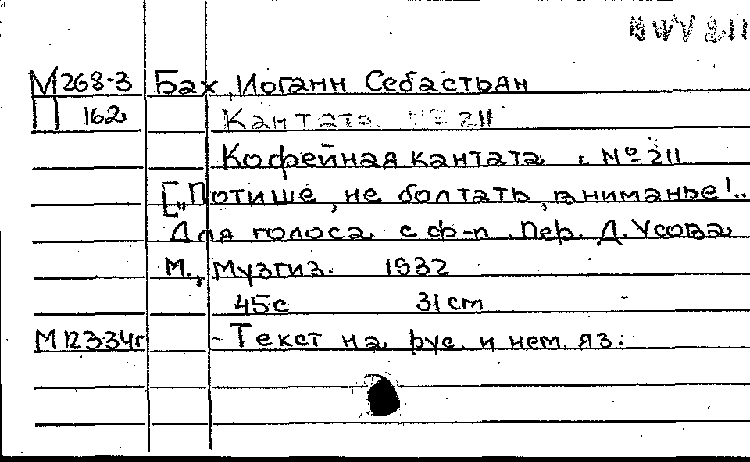 BWV 211
М268-3 Бах, Иоганн Себастьян
П 162 Кантата № 211
Кофейная кантата. № 211
[„Потише, не болтать, вниманье!..
Для голоса с ф-п. Пер. Д. Усова
М., Музгиз. 1932
45с 31cm
М12334г - Текст на рус. и нем. яз.